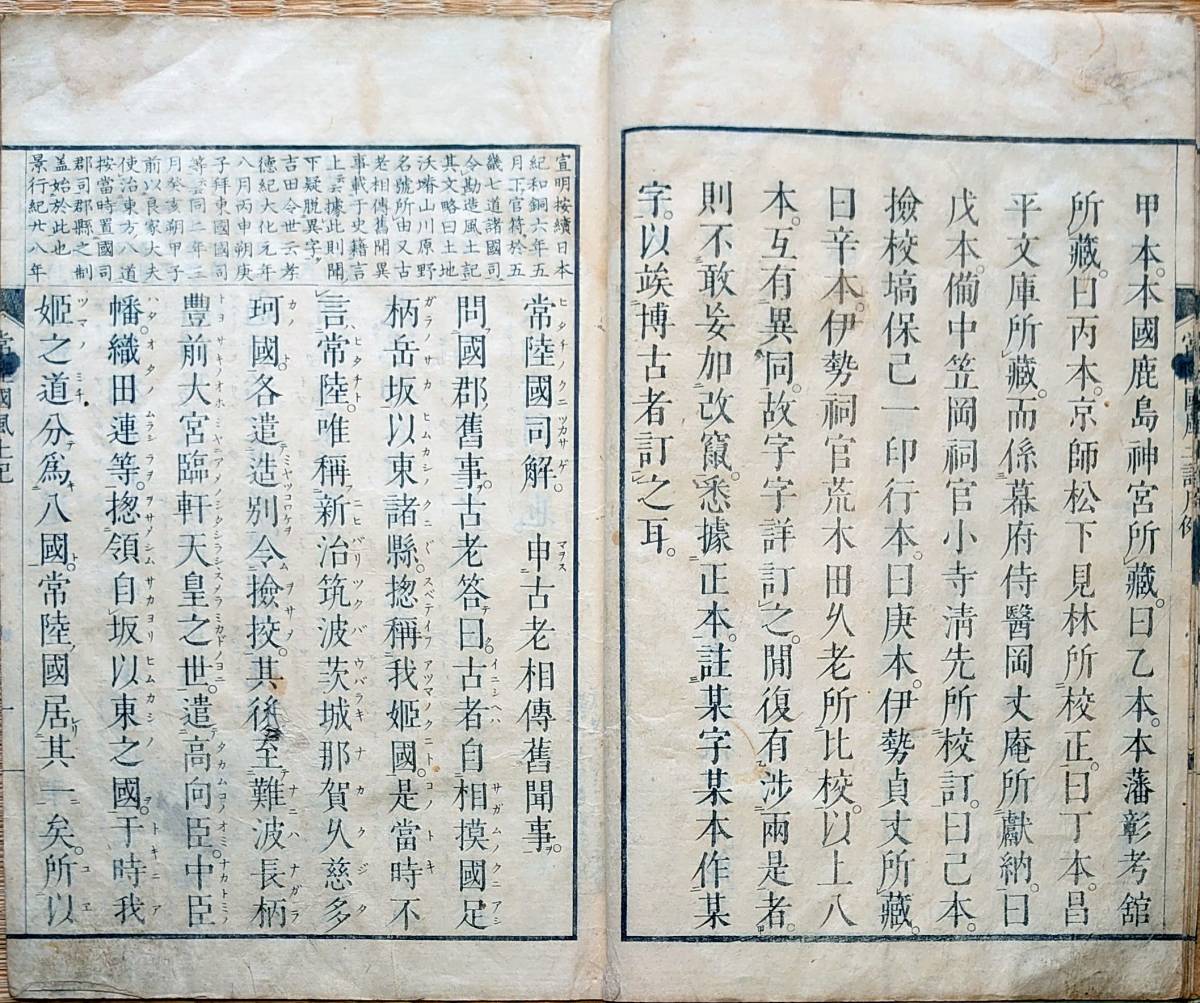 甲本。本國鹿島神宮所藏。曰乙本。本藩彰考舘
所藏。曰丙本。京師松下見林所校正。曰丁本。昌
平文庫所藏。而係幕府侍醫岡丈庵所獻納。曰
戊本。備中笠岡祠官小寺淸先所校訂。曰己本。
撿校塙保己一印行本。曰庚本。伊勢貞丈所藏。
曰辛本。伊勢祠官荒木田久老所比校。以上八
本。互有異同。故字字詳訂之。閒復有涉兩是者。
則不敢妄加改竄。悉據正本。註某字某本作某
字。以竢博古者訂之耳。
宣明按續日本
紀和銅六年五
月下官符於五
畿七道諸國司
令勘造風土記
其文略曰土地
沃塉山川原野
名號所由又古
老相傳舊聞異
事載于史籍言
上云云據此則聞
下疑脫異字
吉田令世云孝
德紀大化元年
八月丙申朔庚
子拜東國國司
等云云同二年三
月癸亥朔甲子
前以良家大夫
使治東方八道
按當時置國司
郡司郡縣之制
盖始於此也
景行紀廿八年
常陸國司解。申古老相傳舊聞事。
問國郡舊事。古老答曰。古者自相摸國足
柄岳坂以東諸縣。惣稱我姬國。是當時不
言常陸。唯稱新治筑波茨城那賀久慈多
珂國。各遣造別令撿挍。其後至難波長柄
豐前大宮臨軒天皇之世。遣高向臣。中臣
幡織田連等。惣領自坂以東之國。于時我
姬之道分爲八國。常陸國居其一矣。所以